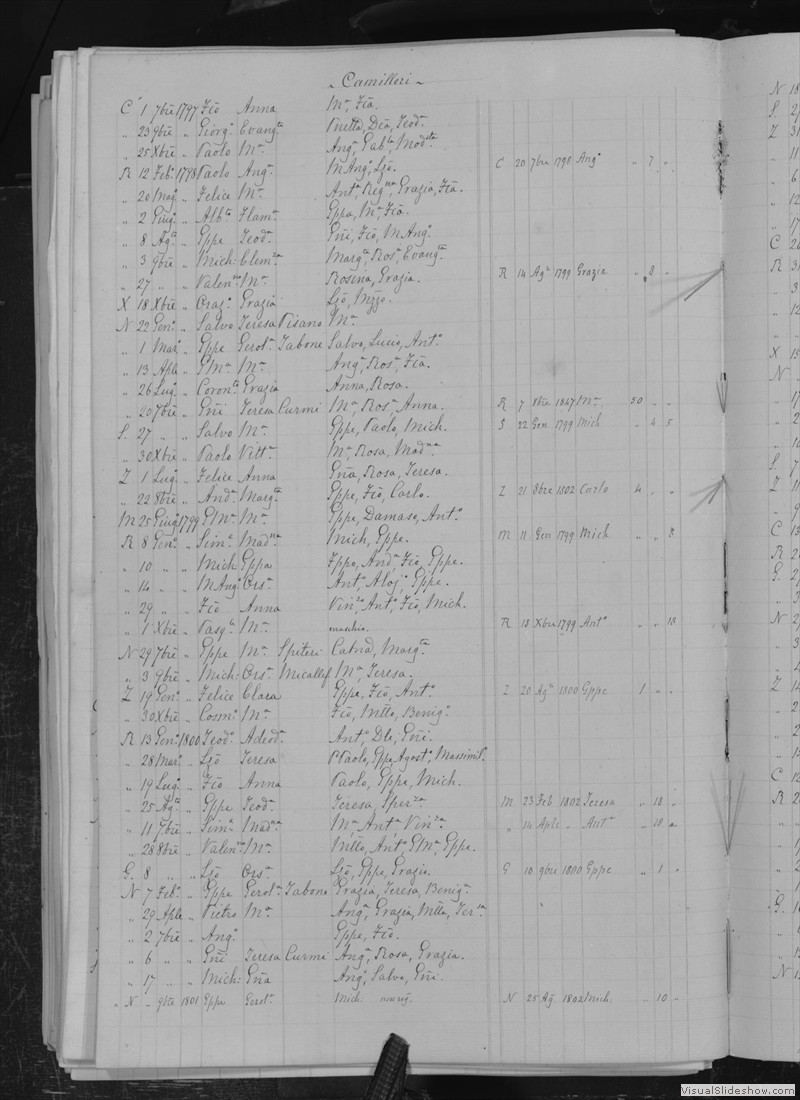 Camilleri
C 1 7bre 1797 Fco Anna Ma, Fca.
„ 23 9bre „ Giorgo Evangta Vnetta, Dca, Teoda
„ 25 Xbre „ Paolo Ma Anga, Gabla, Modsta
R 12 Feb 1798 Paolo Anga M Anga, Ljo. C 20 7bre 1798 Anga „ 7 „
„ 20 Mago „ Felice Ma Anta, Regna, Grazia, Fca.
„ 2 Giugo „ Albto Flama Gppa, Ma, Fca.
„ 8 Agto „ Gppe Teoda Gni, Fco, M Anga
„ 3 9bre „ Mich: Clemza Margta, Rosa, Evangta
„ 27 „ „ Valenno Ma Rosina, Grazia. R 14 Ago 1799 Grazia „ 8 „
X 18 Xbre „ Orazo Grazia Ljo, Nzzo.
N 22 Geno „ Salvo Teresa Pisano Ma
„ 1 Maro „ Gppe Gerola Tabone Salvo, Lucio, Anto
„ 13 Aple „ GMa Ma Anga, Rosa, Fca.
„ 26 Lugo „ Coronto Grazia Anna, Rosa.
„ 20 7bre „ Gni Teresa Curmi Ma, Rosa, Anna. R 7 8bre 1847 Ma 30 „ „
S. 27 „ „ Salvo Ma Gppe, Paolo, Mich. S 22 Gen 1799 Mich „ 4 5
„ 30 Xbre „ Paolo Vitta Ma, Rosa, Madna
Z 1 Lugo „ Felice Anna Gna, Rosa, Teresa.
„ 22 8bre „ Anda Margta Gppe, Fco, Carlo. Z 21 8bre 1802 Carlo 4 „ „
M 25 Giugo 1799 GMa Ma Gppe, Damaso, Anto
R 8 Geno „ Simo Madna Mich, Gppe. M 11 Gen 1799 Mich „ „ 8
„ 10 „ „ Mich Gppa Fppo, Anda, Fco, Gppe.
„ 14 „ „ M Ango Orsa Anto, Aloj, Gppe.
„ 29 „ „ Fco Anna Vinzo, Anto, Fco, Mich.
„ 1 Xbre „ Pasqle Ma maschio. R 18 Xbre 1799 Anto „ „ 18
N 29 7bre „ Gppe Ma Spiteri Catna, Margta
„ 3 9bre „ Mich: Orsa Micallef Ma, Teresa.
Z 19 Geno „ Felice Clara Gppe, Fco, Anto Z 20 Ago 1800 Gppe 1 „ „
„ 30 Xbre „ Cosmo Ma Fco, Nttto, Benigo
R 13 Geno 1800 Teodo Adeoda Anto, Dlo, Gni.
„ 28 Maro „ Ljo Teresa Paolo, Gppe, Agosto, Massimilo
„ 19 Lugo „ Fco Anna Paolo, Gppe, Mich.
„ 25 Agto „ Gppe Teoda Teresa, Sperza M 23 Feb 1802 Teresa „ 18 „
„ 11 7bre „ Simo Madna Ma, Anta, Vinza „ 14 Aple „ Anta „ 18 „
„ 28 8bre „ Valenno Ma Nttto, Anto, GMa, Gppe.
G. 8 „ „ Ljo Orsa Ljo, Gppe, Grazia. G 10 9bre 1800 Gppe „ 1 „
N 7 Febo „ Gppe Gerola Tabone Grazia, Teresa, Beniga
„ 29 Aple „ Pietro Ma Anga, Grazia, Nttta, Tersa
„ 2 7bre „ Ango Gppe, Fco.
„ 6 „ „ Gni Teresa Curmi Anga, Rosa, Grazia.
„ 17 „ „ Mich: Gna Ango, Salvo, Gni.
„ N – 9bre 1801 Gppe Gerola Mich. N 25 Ag 1802 Mich „ 10 „
VisualSlideshow.com